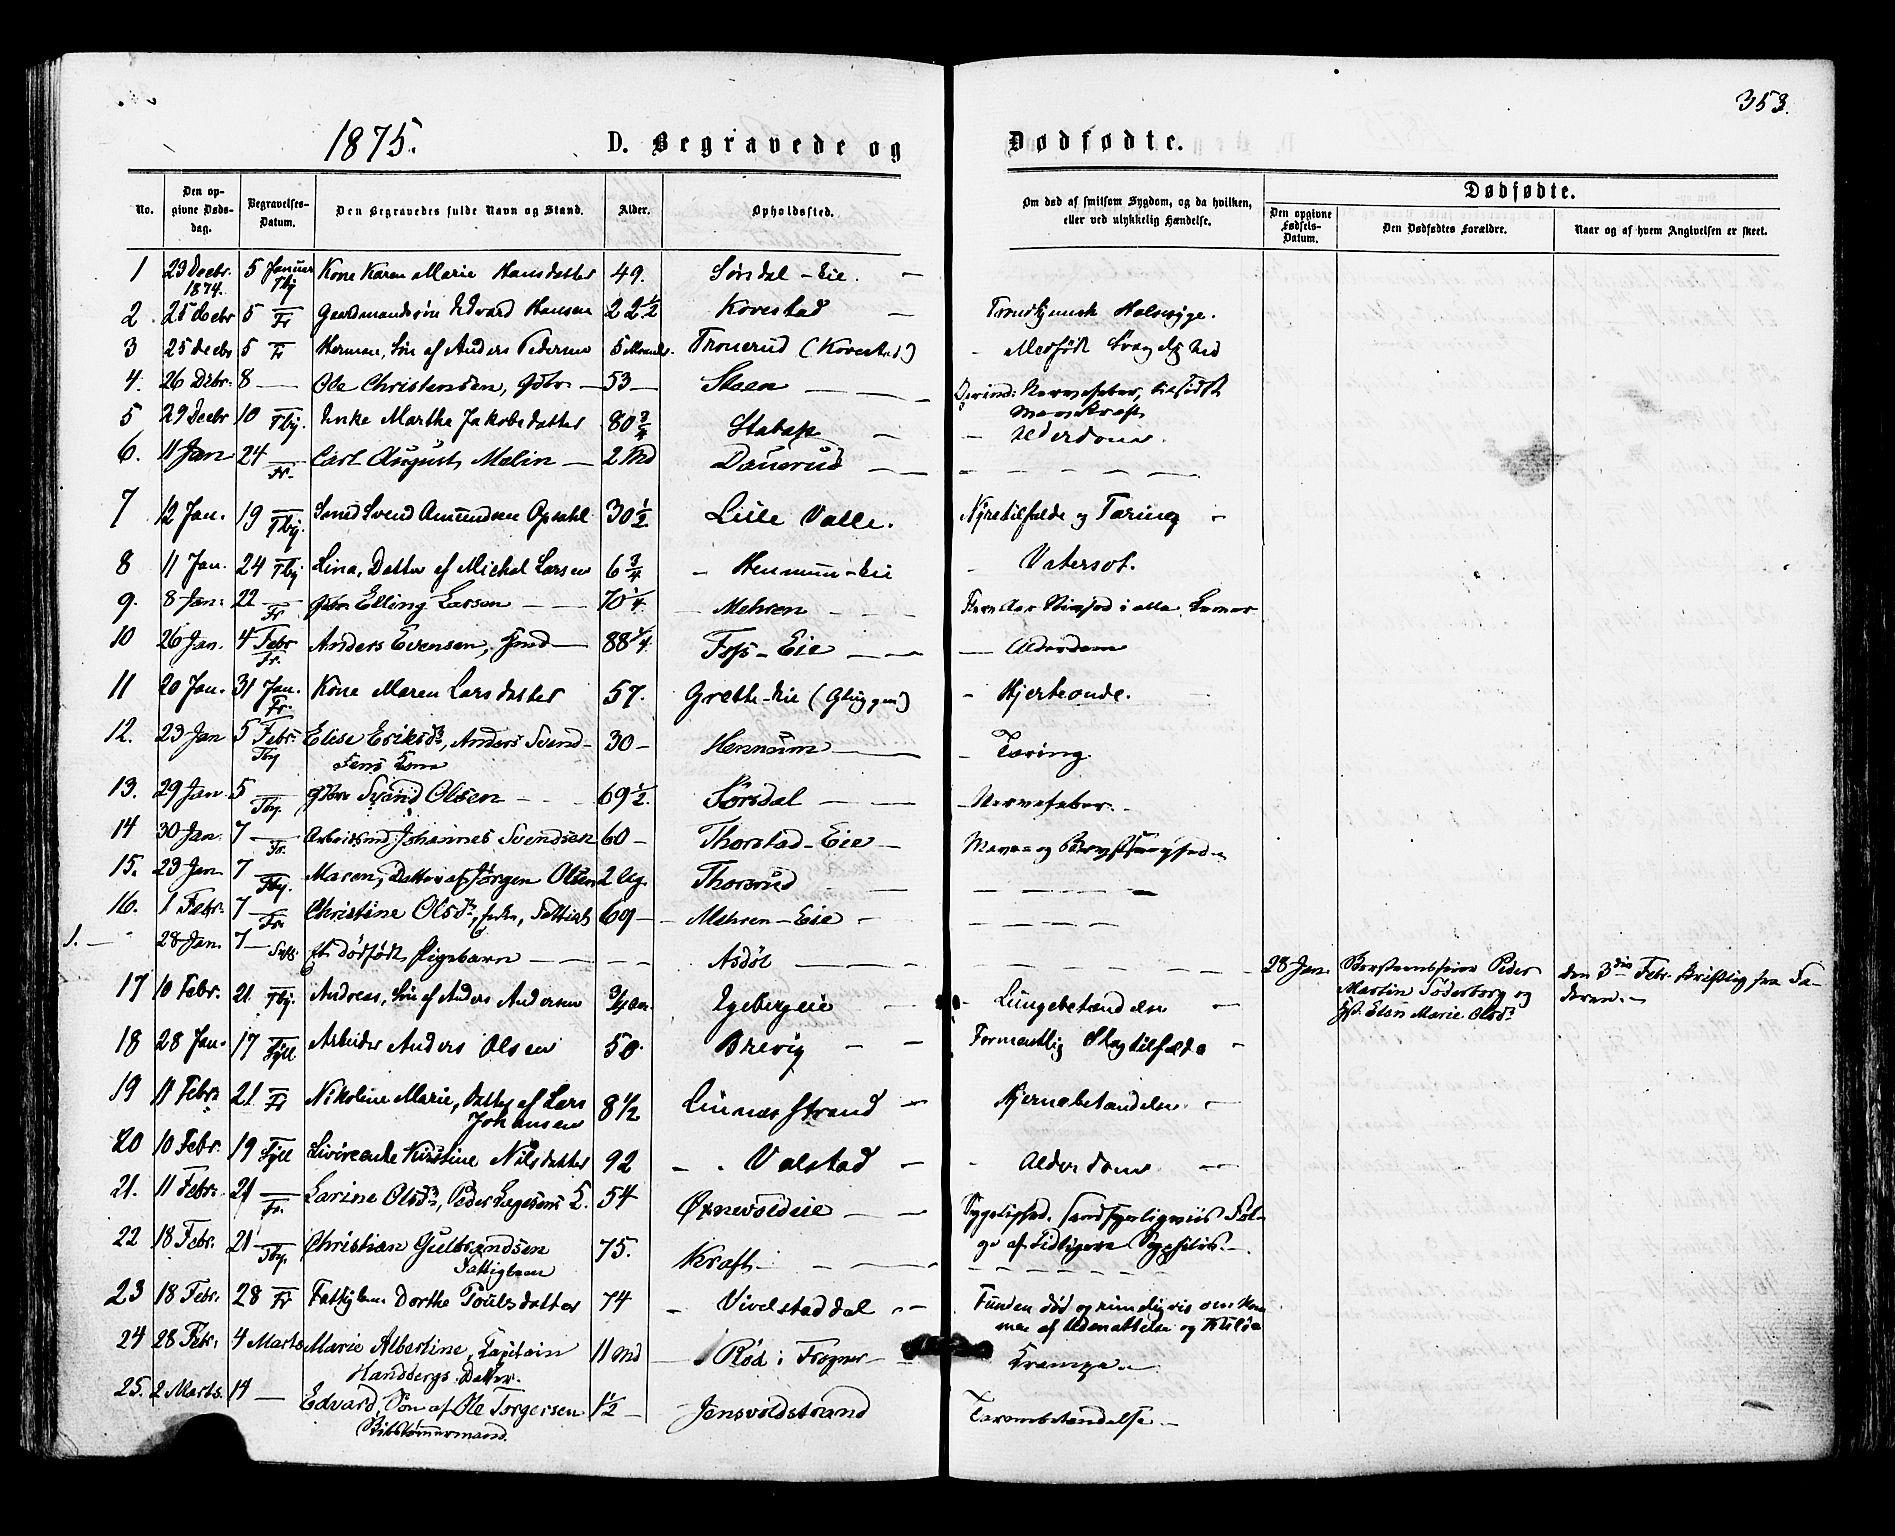 353.
1875. D. Begravede og Dødfødte.
No. Den opgivne Dødsdag. Begravelses-Datum. Den Begravedes fulde Navn og Stand. Alder. Opholdssted. Om død af smitsom Sygdom, og da hvilken, eller ved ulykkelig Hændelse. Dødfødte. Den opgivne Fødsels-Datum. Den Dødfødtes Forældre. Naar og af hvem Angivelsen er skeet.
1 23 Decbr. 1874. 5 Januar Tby Kone Karen Marie Hansdatter 49. Eie. —
2 25 Decbr 5 — Fr Gaardmandssön Edvard Hansen 22 ½ Kovestad — Halssyge.
3 25 Decbr 5 — Fr Herman, Sön af Anders Pedersen 5 Maander. Tronerud (Kovestad) - Medfödt Svaghed
4. 26 Dcbr. 8 — Ole Christensen, Gbr — 53 — Staen — Nervefeber, tilsidst
5 29 Decbr 10 — Tby. Enke Marthe Jakobsdatter 80 ¾ Stabæk — - Alderdom.
6. 11 Jan 24 — Fr. Carl August Malin — 2 Md — — — —
7 12 Jan. 19 — Tby. Svend Amundsen Opsahl 30 ½ Lille Valle. Nyretilfælde og Tæring -
8 11 Jan. 24 — Tby Lina, Datter af Michel Larsen 6 ¾ - Hennum-Eie - Vatersot.
9. 8 Jan: 22 — Fr Gbr. Elling Larsen — — 70 ¼. - Mehren - -
10 26 Jan. 4 Febr Fr. Anders Evensen, — 88 ¼. Foss-Eie — — — Alderdom
11 20 Jan. 31 Jan. Fr. Kone Maren Larsdatter 57. Grette-Eie (Gluggen) - Hjerteonde.
12. 23 Jan 5 Febr. Tby Elise Eriksdr, Anders Svend-
sens Kone 30 — Hennum — — - Tæring.
13. 29 Jan 5 — Tby. Gbr. Svend Olsen — — 69 ½. Sörsdal — — - Nervefeber. -
14 30 Jan. 7 — Fr. Arbeidsmd. Johannes Svendsen 60 — Thorstad-Eie — Mave- og Brystsvaghed -
15. 23 Jan. 7 — Tby. Maren, Datter af Jørgen Olsen 2 Ug. Thorsrud — — — — —
16. 1 Febr. 7 — Fr. Christine Olsdr, Enke, Fattigl. 69 — Mehren-Eie — — — — —
1. — " 28 Jan. 7 — Sylli. Et dødfødt Pigebarn — — — Asdöl — — — 28 Jan. Peder
Martin Söderborg og
Hst. Elen Marie Olsdr den 3die Febr. skriftlig fra Fa-
deren. -
17 10 Febr. 21. Tby. Andreas, Sön af Anders Andersen ¾ Aar. Egebergeie — - Lungebetændelse —
18 28 Jan. 17 — Sylli Arbeider Anders Olsen 50. Brevig — — Formentlig Slagtilfælde —
19 11 Febr. 21 — Fr Nikoline Marie, Datter af Lars
Johansen 8 ½ Linnesstrand — Hjernebetændelse. —
20 10 Febr. 19 Sylli Kirstine Nilsdatter 92 - . Valstad — - Alderdom. —
21. 11 Febr. 21 — Fr. Larine Olsdr, Peder Lagesens E. 54 Øxnevoldeie — — Sygelighed. sandsynligviis Föl-
ge af tidligere Syphilis. —
22 18 Febr. 21 — Tby. Christian Gulbrandsen
Fattiglem 75. Kraft. — — — — — — —
23 18 Febr. 28 — Fr Fattiglem Dorthe Poulsdatter 74 - Vivelstaddal - - Funden död og rimeligvis om kom-
men af Udmattelse og Kulde
24 28 Febr. 4 Marts Marie Albertine, Capitain
Handbergs Datter. 11 Md — Röd i Frogner — Krampe. —
25. 2 Marts. 14 — Edvard, Sön af Ole Torgersen
Skibstömmermand. 1 ½ — Jensvoldstrand Tarmbetændelse. —